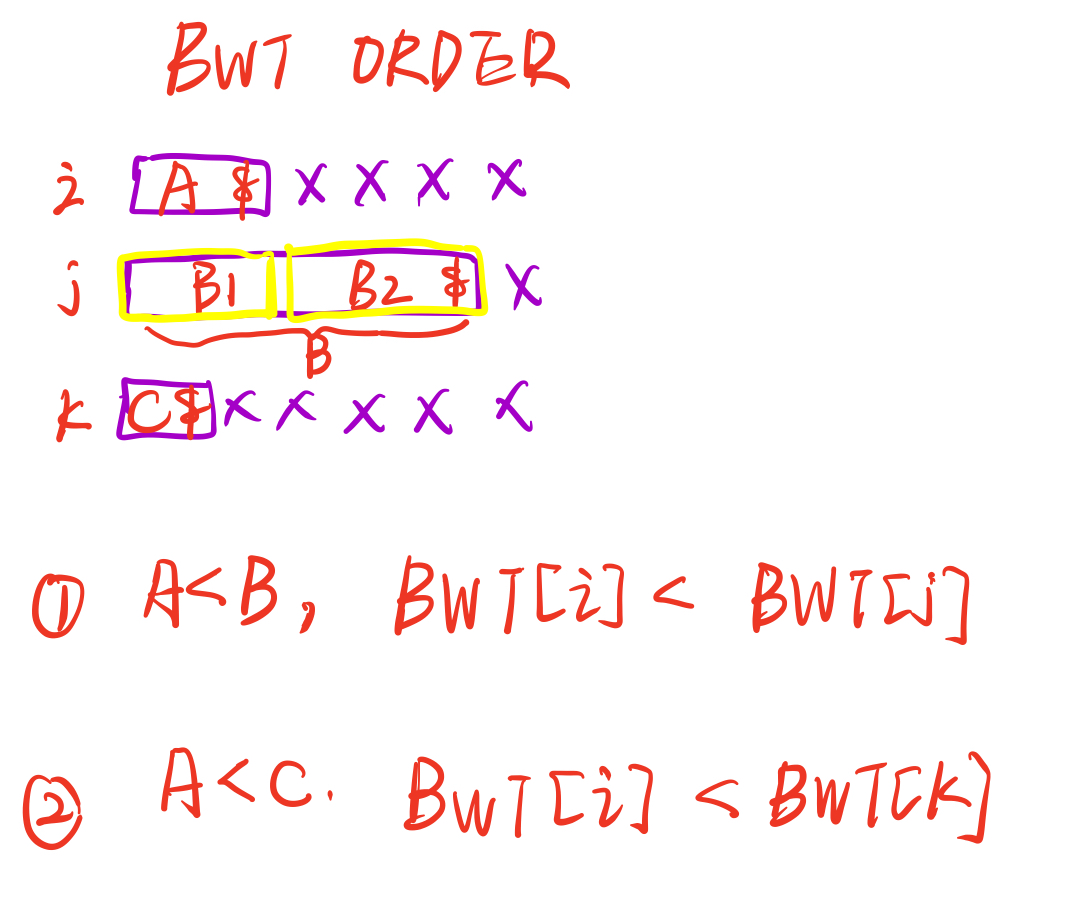 BWT ORDER
i A $ X X X X
j B1 B2 $ X
B
K C$ X X X X X
① A<B, BWT[i] < BWT[j]
② A<C. BWT[i] < BWT[K]